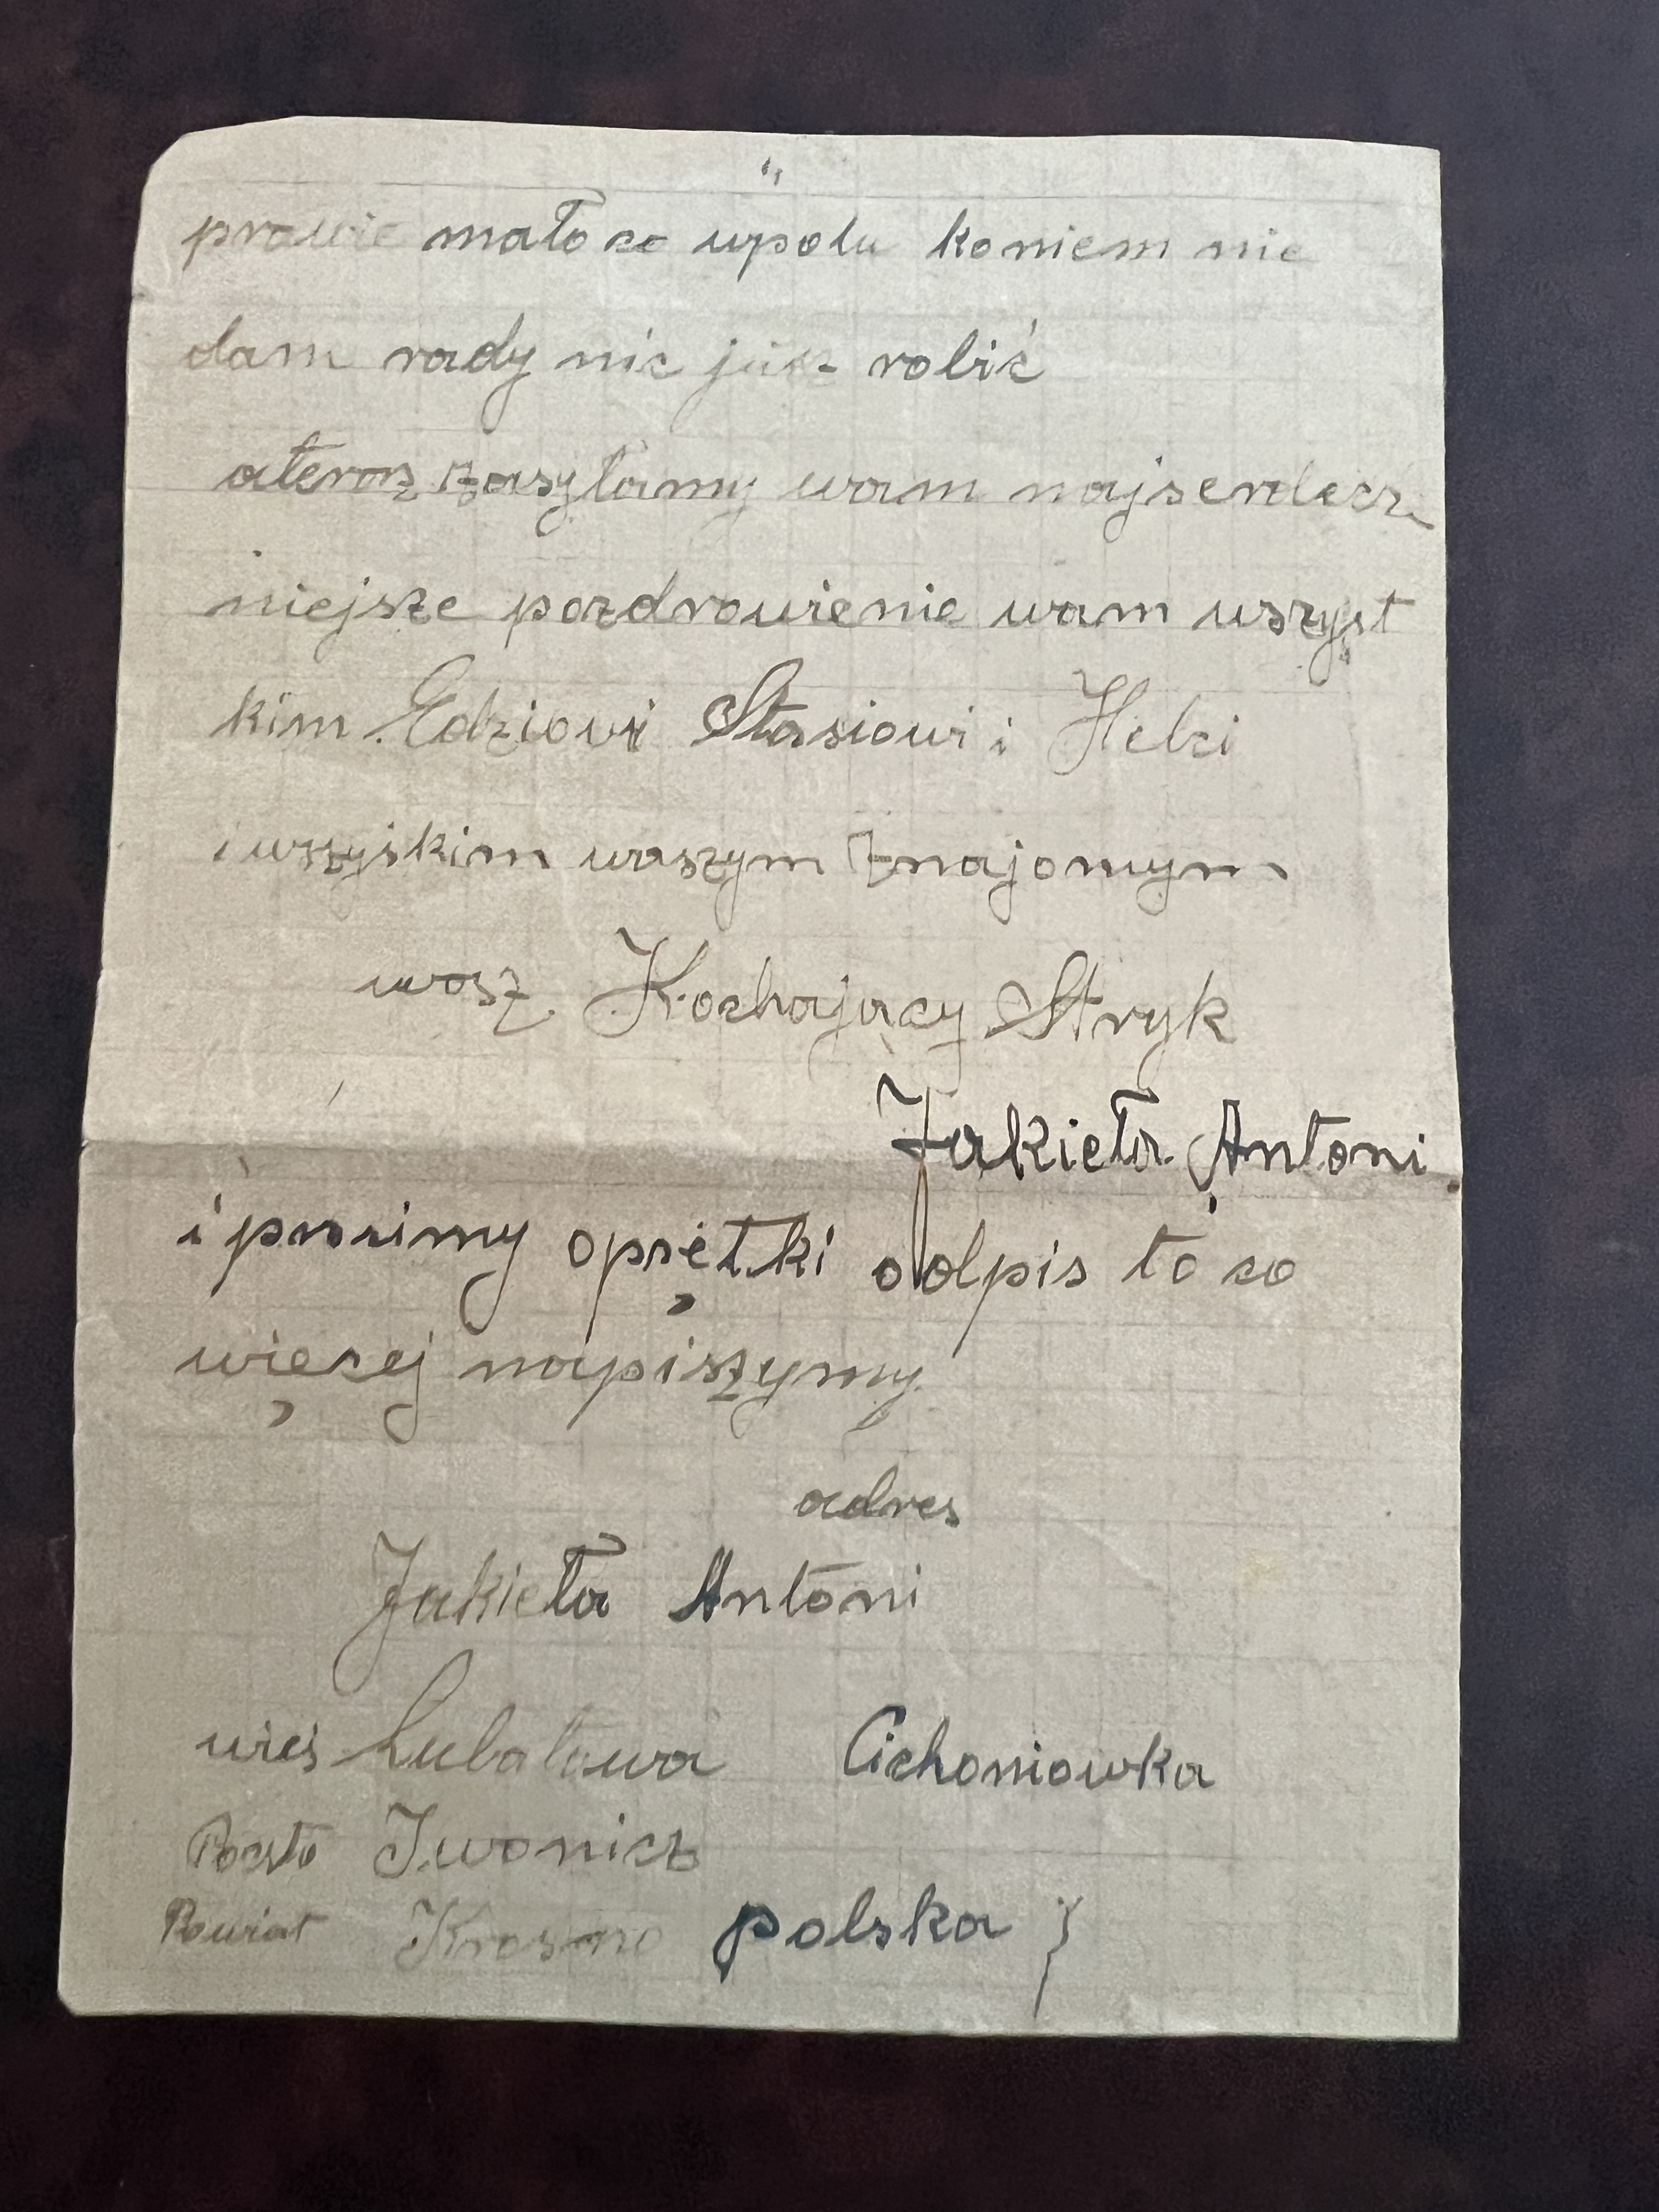 prawie mało co wpolu koniem nie
dam rady nic jusz robić
ateroz zasyłamy wam najserdecz
niejsze pozdrowienie wam wszyst
kim Edziowi Stasiowi i Helci
i wszyskim waszym znajomym
wasz Kochający Stryk
Jakieła Antoni
i prosimy oprętki odpis to co
więcej napiszymy
adres
Jakieła Antoni
wieś Lubatowa Cichoniowka
Poczta Iwonicz
Powiat Krosno polska